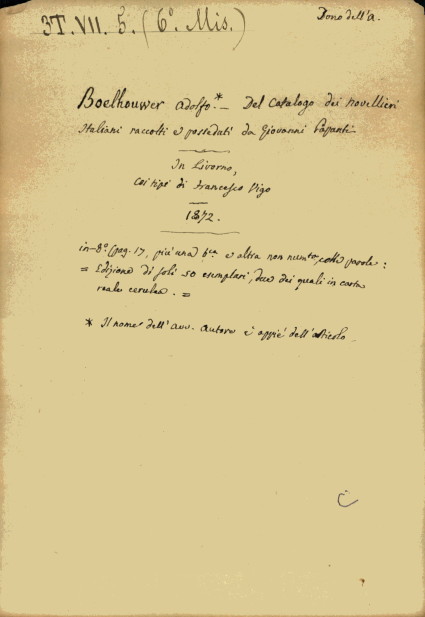 3T. VII. 5. (6º. Mis.)
Dono dell'a.
Boelhouwer Adolfo.* – Del Catalogo dei novellieri
Italiani raccolti e posseduti da Giovanni Papanti.
In Livorno,
coi tipi di Francesco Vigo
1872.
in-8º. (pag. 17, più una b.ca e altra non numta., colle parole:
= Edizione di soli 50 esemplari, due dei quali in carta
reale cerulea. =
* Il nome dell'Avv. Autore è appiè dell'articolo.